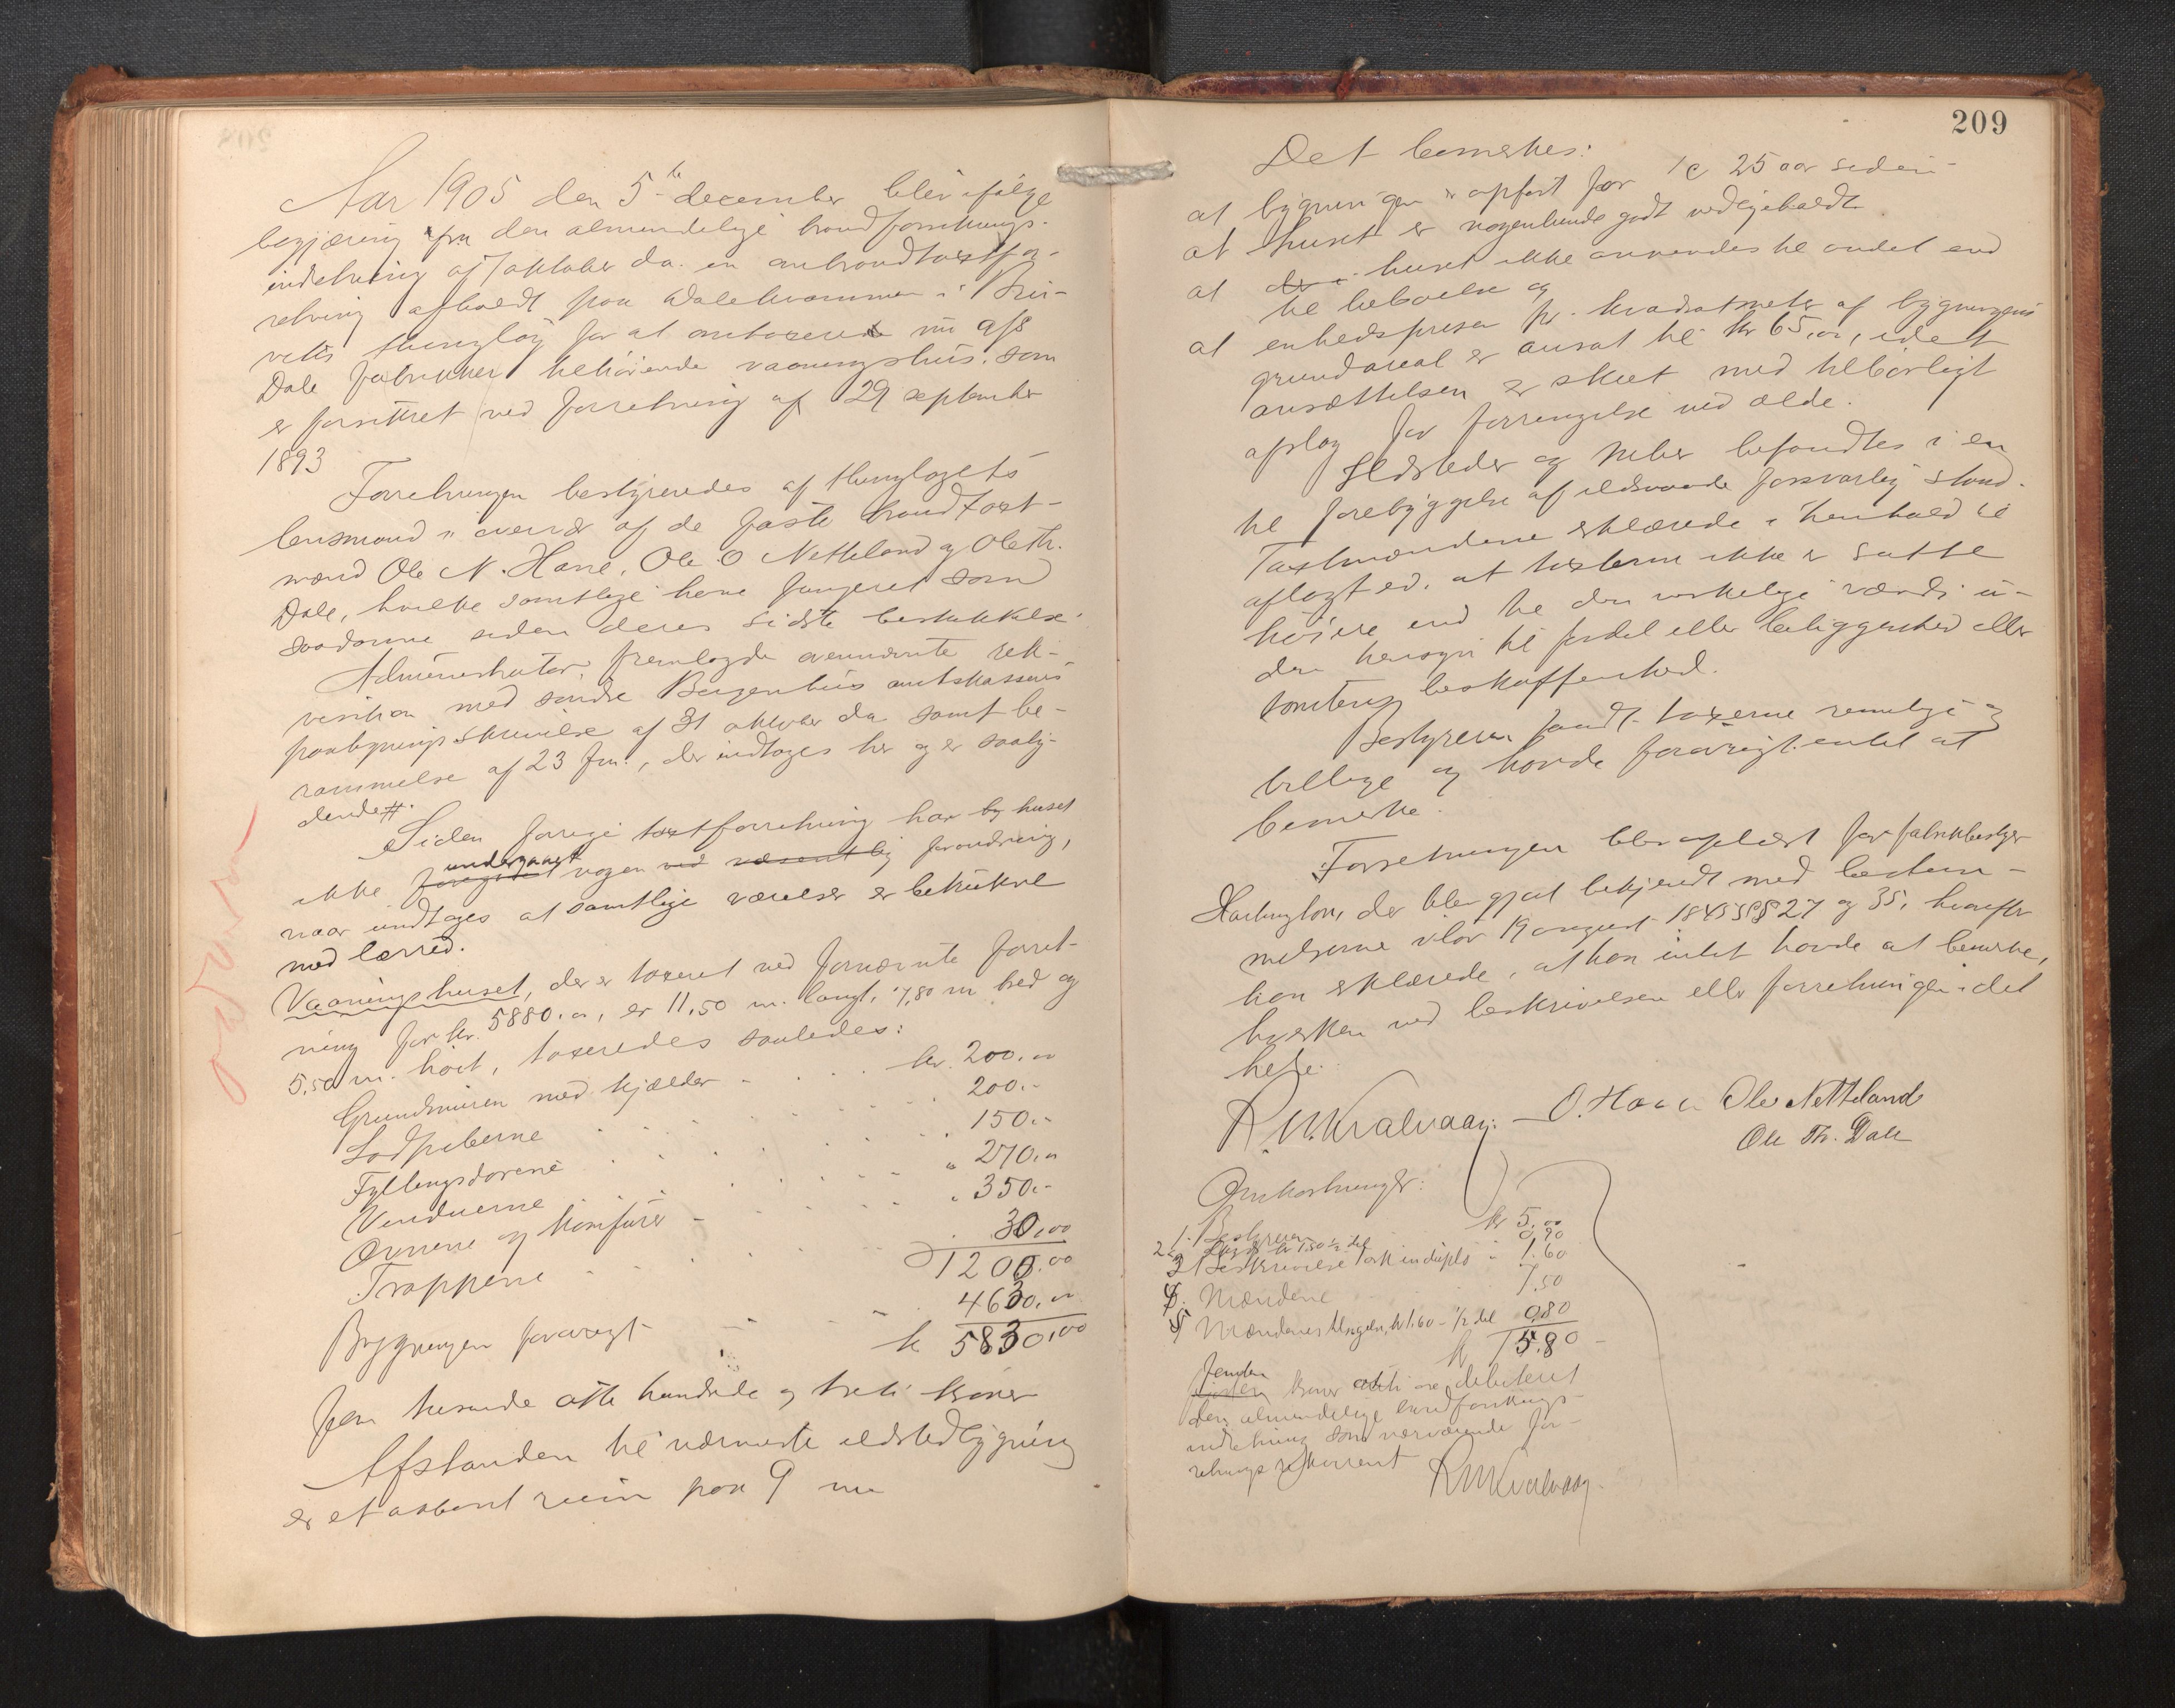 Aar 1905 den 5te december blev ifölge
begjæring fra den almindelige brandforsikrings-
indretning af 7 oktober d.a. en ombrandtaxtfor-
retning afholdt paa Dalekvammen i Bru-
viks thinglag for at omtaxere
Dale fabrikker tilhörende vaaningshus som
er forsikret ved forretning af 29 september
1893
Forretningen bestyredes af thinglagets
lensmand i overvær af de faste brandtaxt-
mænd Ole N. Hane, Ole O Netteland og Ole Th.
Dale, hvilke samtlige have fungeret som
saadanne siden deres sidste beskikkelse.
Administrator fremlagde ovennævnte rek-
visition med söndre Bergenhus amtskasseres
paategningsskrivelse af 31 oktober d.a. samt be-
rammelse af 23 f.m., der indtages her og er saaly-
dende #.
Siden forrige taxtforretning har by huset
ikke foregaaet undergaaet nogen ved væsentlig forandring,
naar undtages at samtlige værelser er betrukne
med lærred.
Vaaningshuset, der er taxeret ved fornævnte forret-
ning for kr. 5880.00, er 11,50 m. langt, 7,80 m bred og
5,50 m. höit, taxeredes saaledes:
Grundmuren med kjælder - . . . kr. 200.00
Lodpiberne . . . . . 200.-
Fyllingsdörene . . . . 150.-
Vinduerne . . . . " 270.00
Ovnene og komfurer - . . . " 350.-
Trappene . . . . 30.00
1200.00
Bygningen forövrigt - - - 4630.00
kr 5830.00
fem tusinde otte hundrede og treti kroner
Afstanden til nærmeste ildstedbygning
er et aabent rum paa 9 m
209
Det bemerkes:
at bygningen er opfört for ca 25 aar siden
at huset er nogenlunde godt vedligeholdt
at den huset ikke anvendes til andet end
til beboelse og
at enhedsprisen pr. kvadratmeter af bygningens
grundareal er ansat til kr 65.00, idet
ansættelsen er skeet med tilbörligt
afslag for forringelse ved ælde.
Ildsteder og piber befandtes i en
til forebyggelse af ildsvaade forsvarlig stand.
Taxtmændene erklærede i henhold til
aflagt ed, at taxterne ikke er satte
höiere end til den virkelige værdi u-
den hensyn til fordel eller beliggenhed eller
tomtens beskaffenhed.
Bestyreren fandt taxterne rimelige og
billige og havde forövrigt intet at
bemerke.
Forretningen blev oplæst for fabrikbestyrer
der blev gjort bekjendt med bestem-
melserne i lov 19 august 1845 §§ 27 og 35, hvorefter
han erklærede, at han intet havde at bemerke,
hverken ved beskrivelsen eller forretningen i det
hele.
R. M. Kvalvaag. O. Hane Ole Netteland
Ole Th. Dale
Omkostninger:
1. Bestyreren kr 5.00
2. kr 1.50 ½ del 0.90
3 Beskrivelse 1 ark in duplo " 1.60
4. Mændene 7.50
5 Mændenes kr 1.60 - ½ del 0.80
kr 15.80
femten
kroner otti öre debiteret
den almindelige brandforsikrings-
indretning som nærværende for-
retnings rekvirent
R M Kvalvaag.